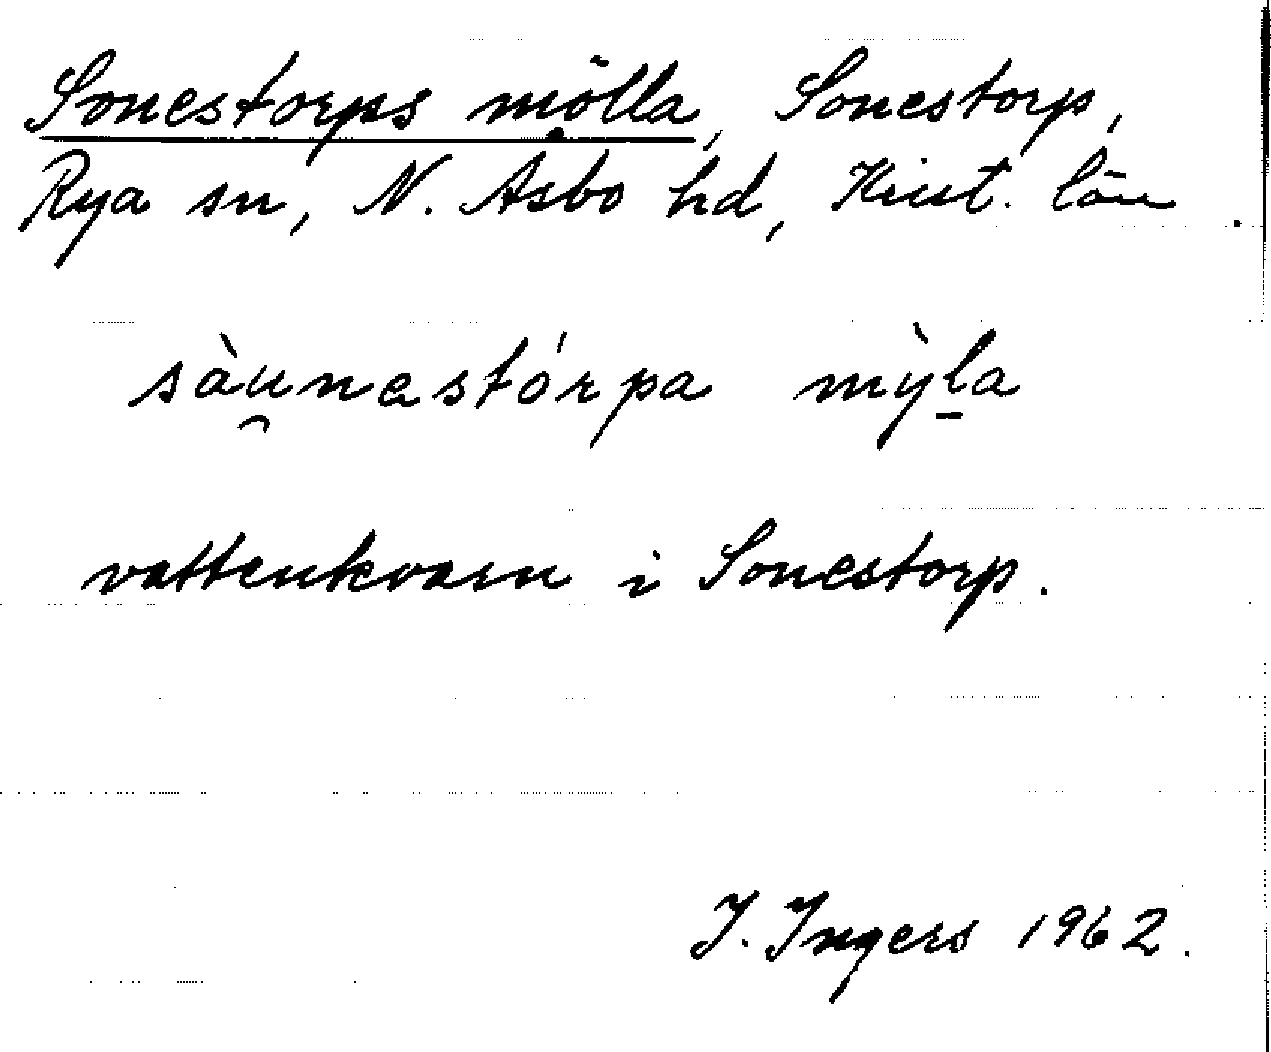 Sonestorps mölla, Sonestorp,
Rya sn, N. Asbo hd, Krist. län.
sàu̯nastórpa mỳl̠a
vattenkvarn i Sonestorp.
I. Ingers 1962.